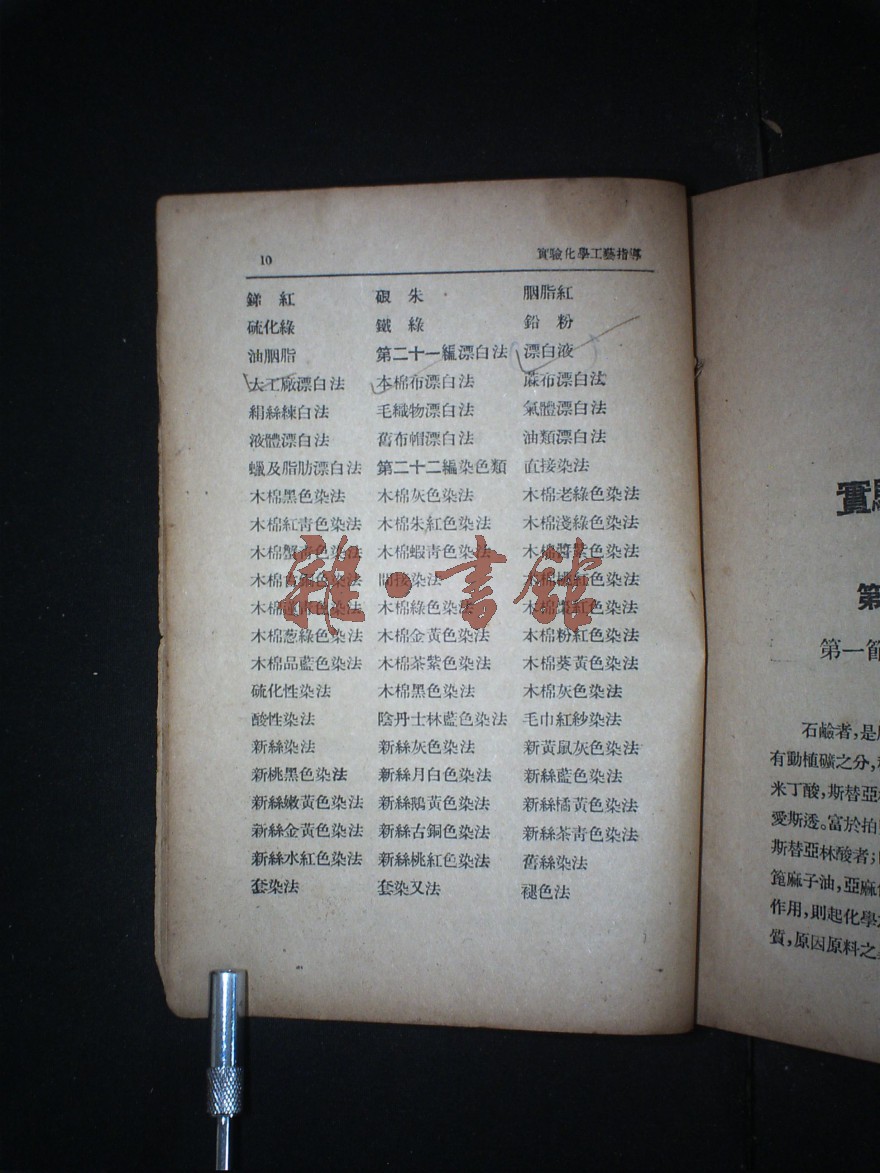 10 實驗化學工藝指導
銻紅 硍朱 胭脂紅
硫化綠 鐵綠 鉛粉
油胭脂 第二十一編漂白法 漂白液
大工廠漂白法 本棉布漂白法 蔴布漂白法
絹絲練白法 毛織物漂白法 氣體漂白法
液體漂白法 舊布帽漂白法 油類漂白法
蠟及脂肪漂白法 第二十二編染色類 直接染法
木棉黑色染法 木棉灰色染法 木棉老綠色染法
木棉紅青色染法 木棉朱紅色染法 木棉淺綠色染法
木棉蟹青色染法 木棉蝦青色染法 木棉醬紫色染法
木棉古銅色染法 間接染法 木棉桃紅色染法
木棉色染法 木棉綠色染法 木棉棗紅色染法
木棉葱綠色染法 木棉金黃色染法 本棉粉紅色染法
木棉品藍色染法 木棉茶紫色染法 木棉葵黃色染法
硫化性染法 木棉黑色染法 木棉灰色染法
酸性染法 陰丹士林藍色染法 毛巾紅紗染法
新絲染法 新絲灰色染法 新黃鼠灰色染法
新桃黑色染法 新絲月白色染法 新絲藍色染法
新絲嫩黃色染法 新絲鵝黃色染法 新絲橘黃色染法
新絲金黃色染法 新絲古銅色染法 新絲茶青色染法
新絲水紅色染法 新絲桃紅色染法 舊絲染法
套染法 套染又法 褪色法
雜·書館
實
第
第一節
石鹼者，是
有動植礦之分，
米丁酸，斯替亞
愛斯透。富於拍
斯替亞林酸者；
箆麻子油，亞麻
作用，則起化學
質，原因原料之